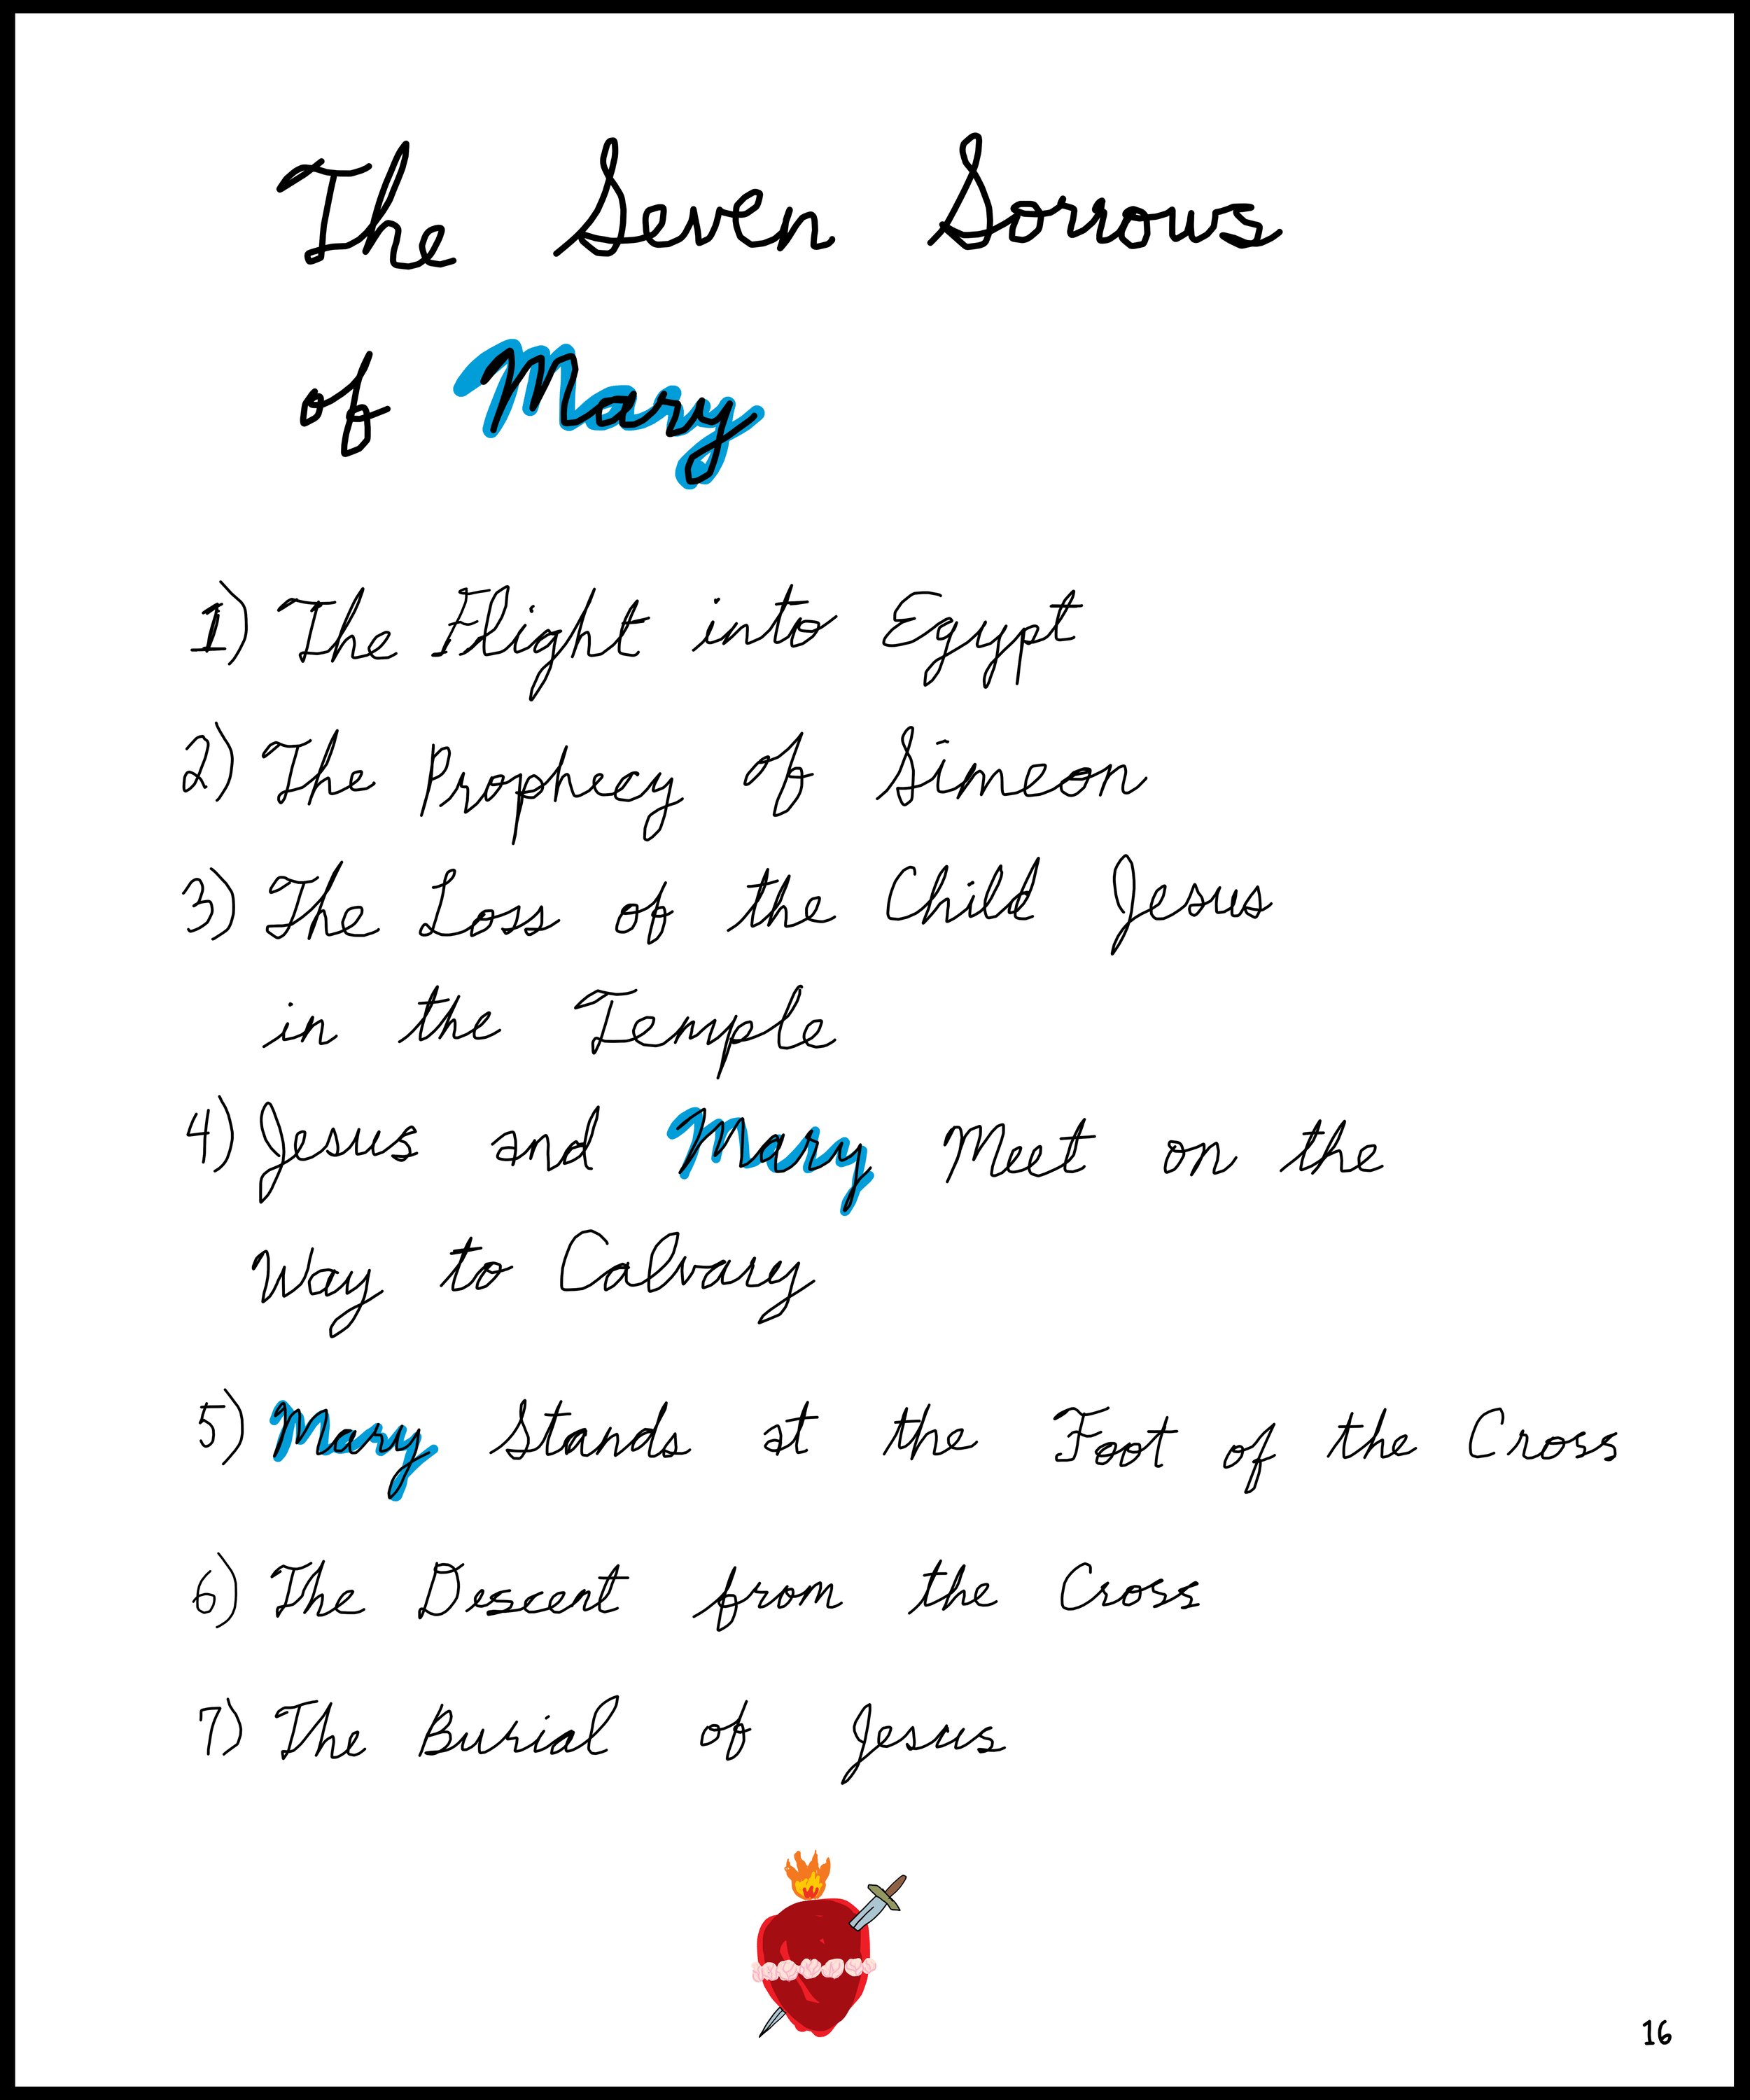 The Seven Sorrows
of Mary
1) The Flight into Egypt
2) The Prophecy of Simeon
3) The Loss of the Child Jesus
in the Temple
4) Jesus and Mary Meet on the
Way to Calvary
5) Mary Stands at the Foot of the Cross
6) The Descent from the Cross
7) The Burial of Jesus
16